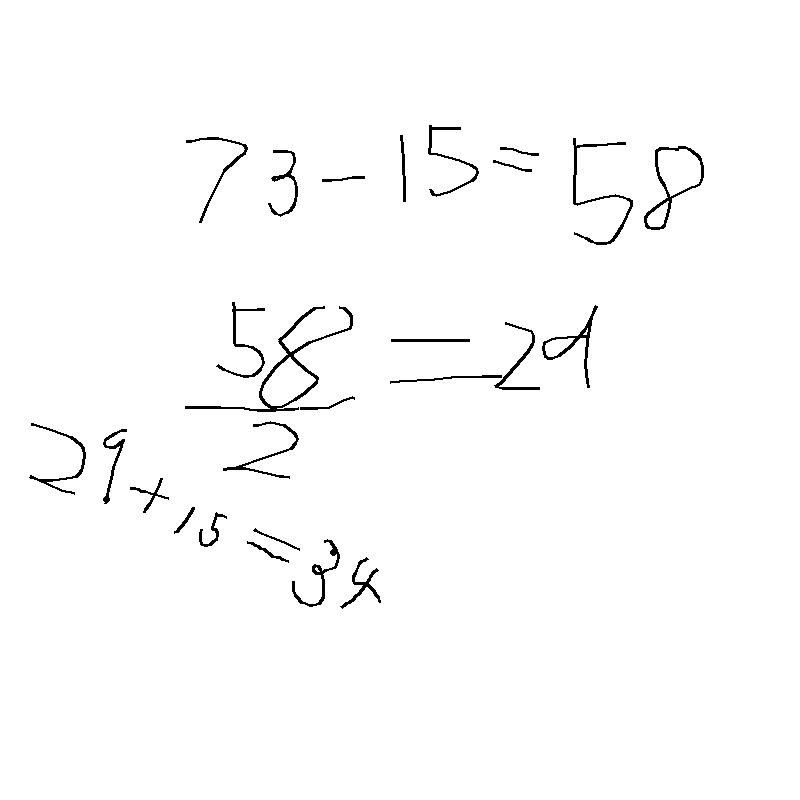 73-15=58
58/2=29
29+15=34